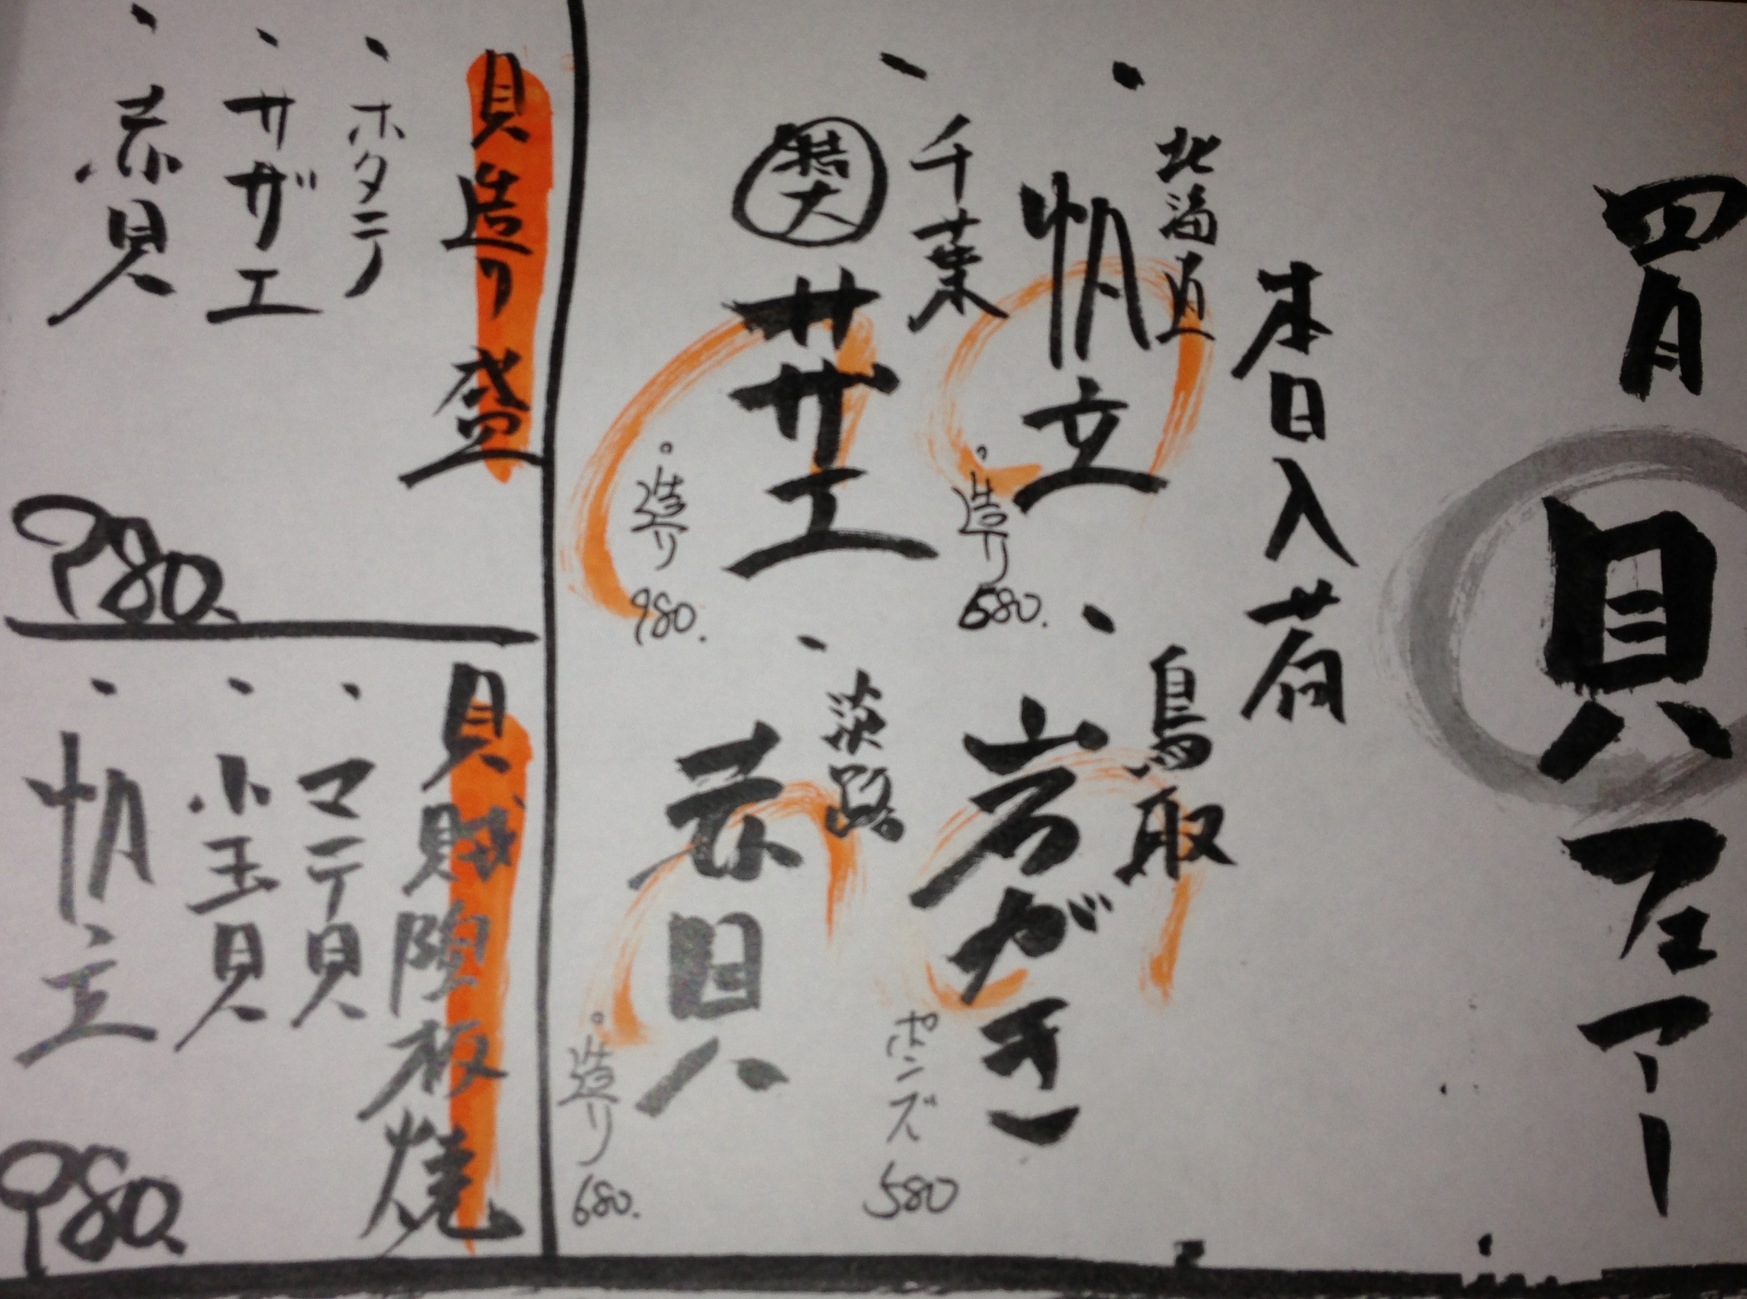 四月
貝フェアー
本日入荷
・北海道
帆立
。造り
580.
・鳥取
岩がき
ポンズ
580
・千葉
特大
サザエ
。造り
980.
・淡路
赤貝
。造り
680.
貝造り盛
・ホタテ
・サザエ
・赤貝
980.
貝賊陶板焼
・マテ貝
・小玉貝
・帆立
980.